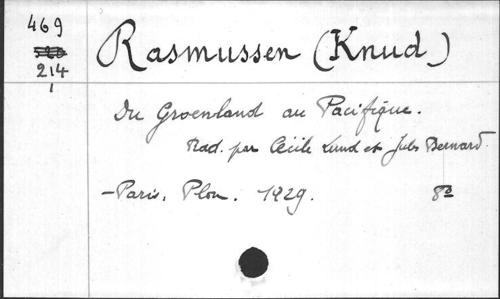 469
214
1
Rasmussen (Knud)
Du Groenland au Pacifique.
Trad. par Cécile Lund et Jules Bernard.
- Paris, Plon. 1929. 8º